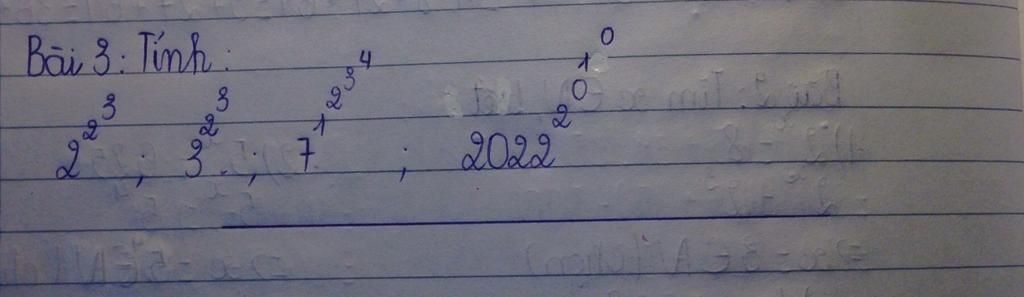 Bài 3: Tính:
2^{2^{3}} ; 3^{2^{3}} ; 7^{1^{2^{3^{4}}}} ; 2022^{2^{0^{1^{0}}}}